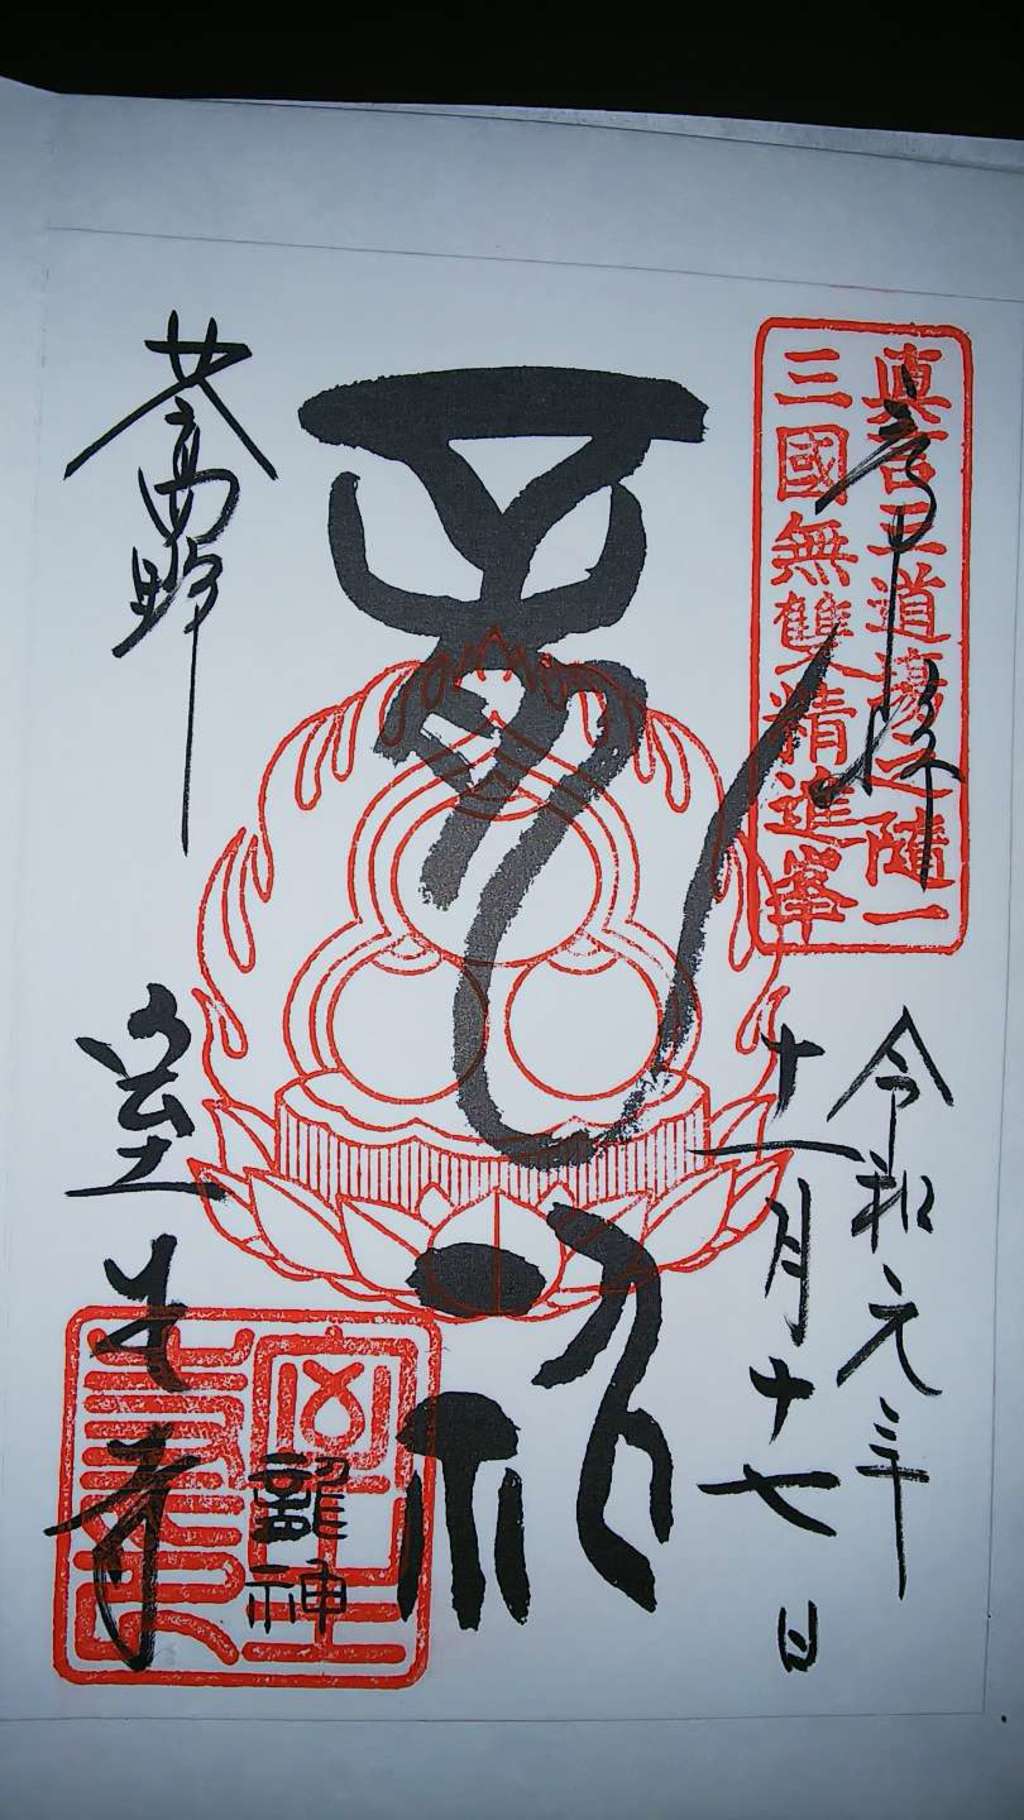 奉拝
真言王道場之随一
三國無雙精進峯
令和元年
十一月十七日
龍神
女高野
室生寺